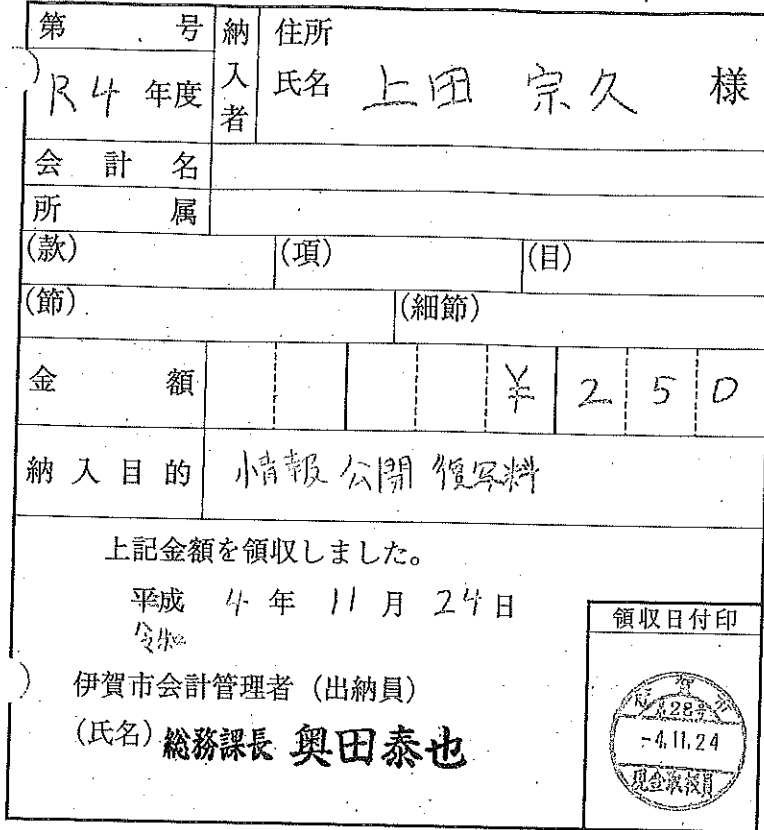 第 . 号
R4 年度
納入者
住所
氏名 上田 宗久 様
会計名
所属
(款) (項) (目)
(節) (細節)
金額 ¥250
納入目的 情報公開複写料
上記金額を領収しました。
平成 4年 11月 24日
令和
伊賀市会計管理者 (出納員)
(氏名) 総務課長 奥田泰也
領収日付印
伊賀市
第28号
-4.11.24
現金取扱員